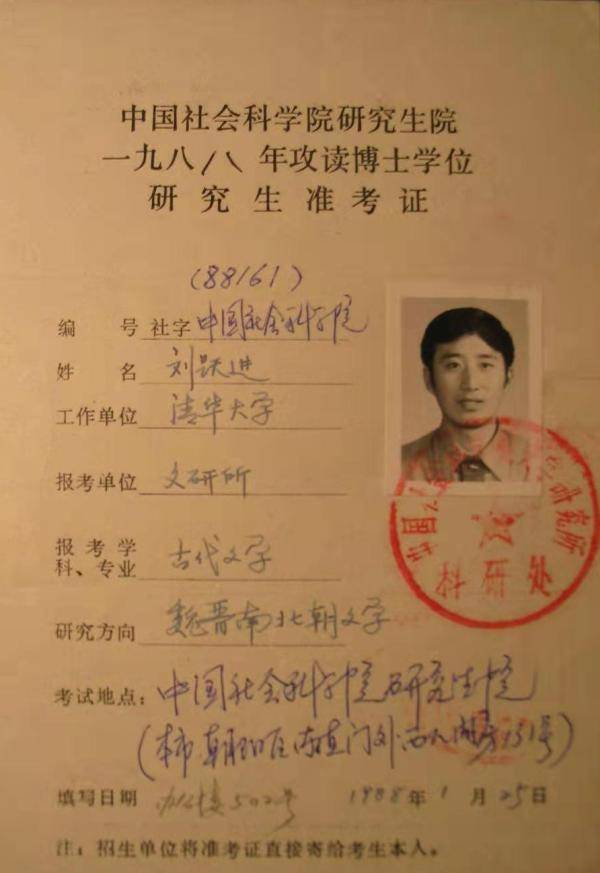 中国社会科学院研究生院
一九八八年攻读博士学位
研究生准考证
(88161)
编 号 社字 中国社会科学院
姓 名 刘跃进
工作单位 清华大学
报考单位 文研所
报考学
科、专业 古代文学
研究方向 魏晋南北朝文学
考试地点: 中国社会科学院研究生院
(本市朝阳区东直门外西八间房151号)
填写日期 办公楼502号 1988年1月25日
注:招生单位将准考证直接寄给考生本人。
中国 研究所
科研处